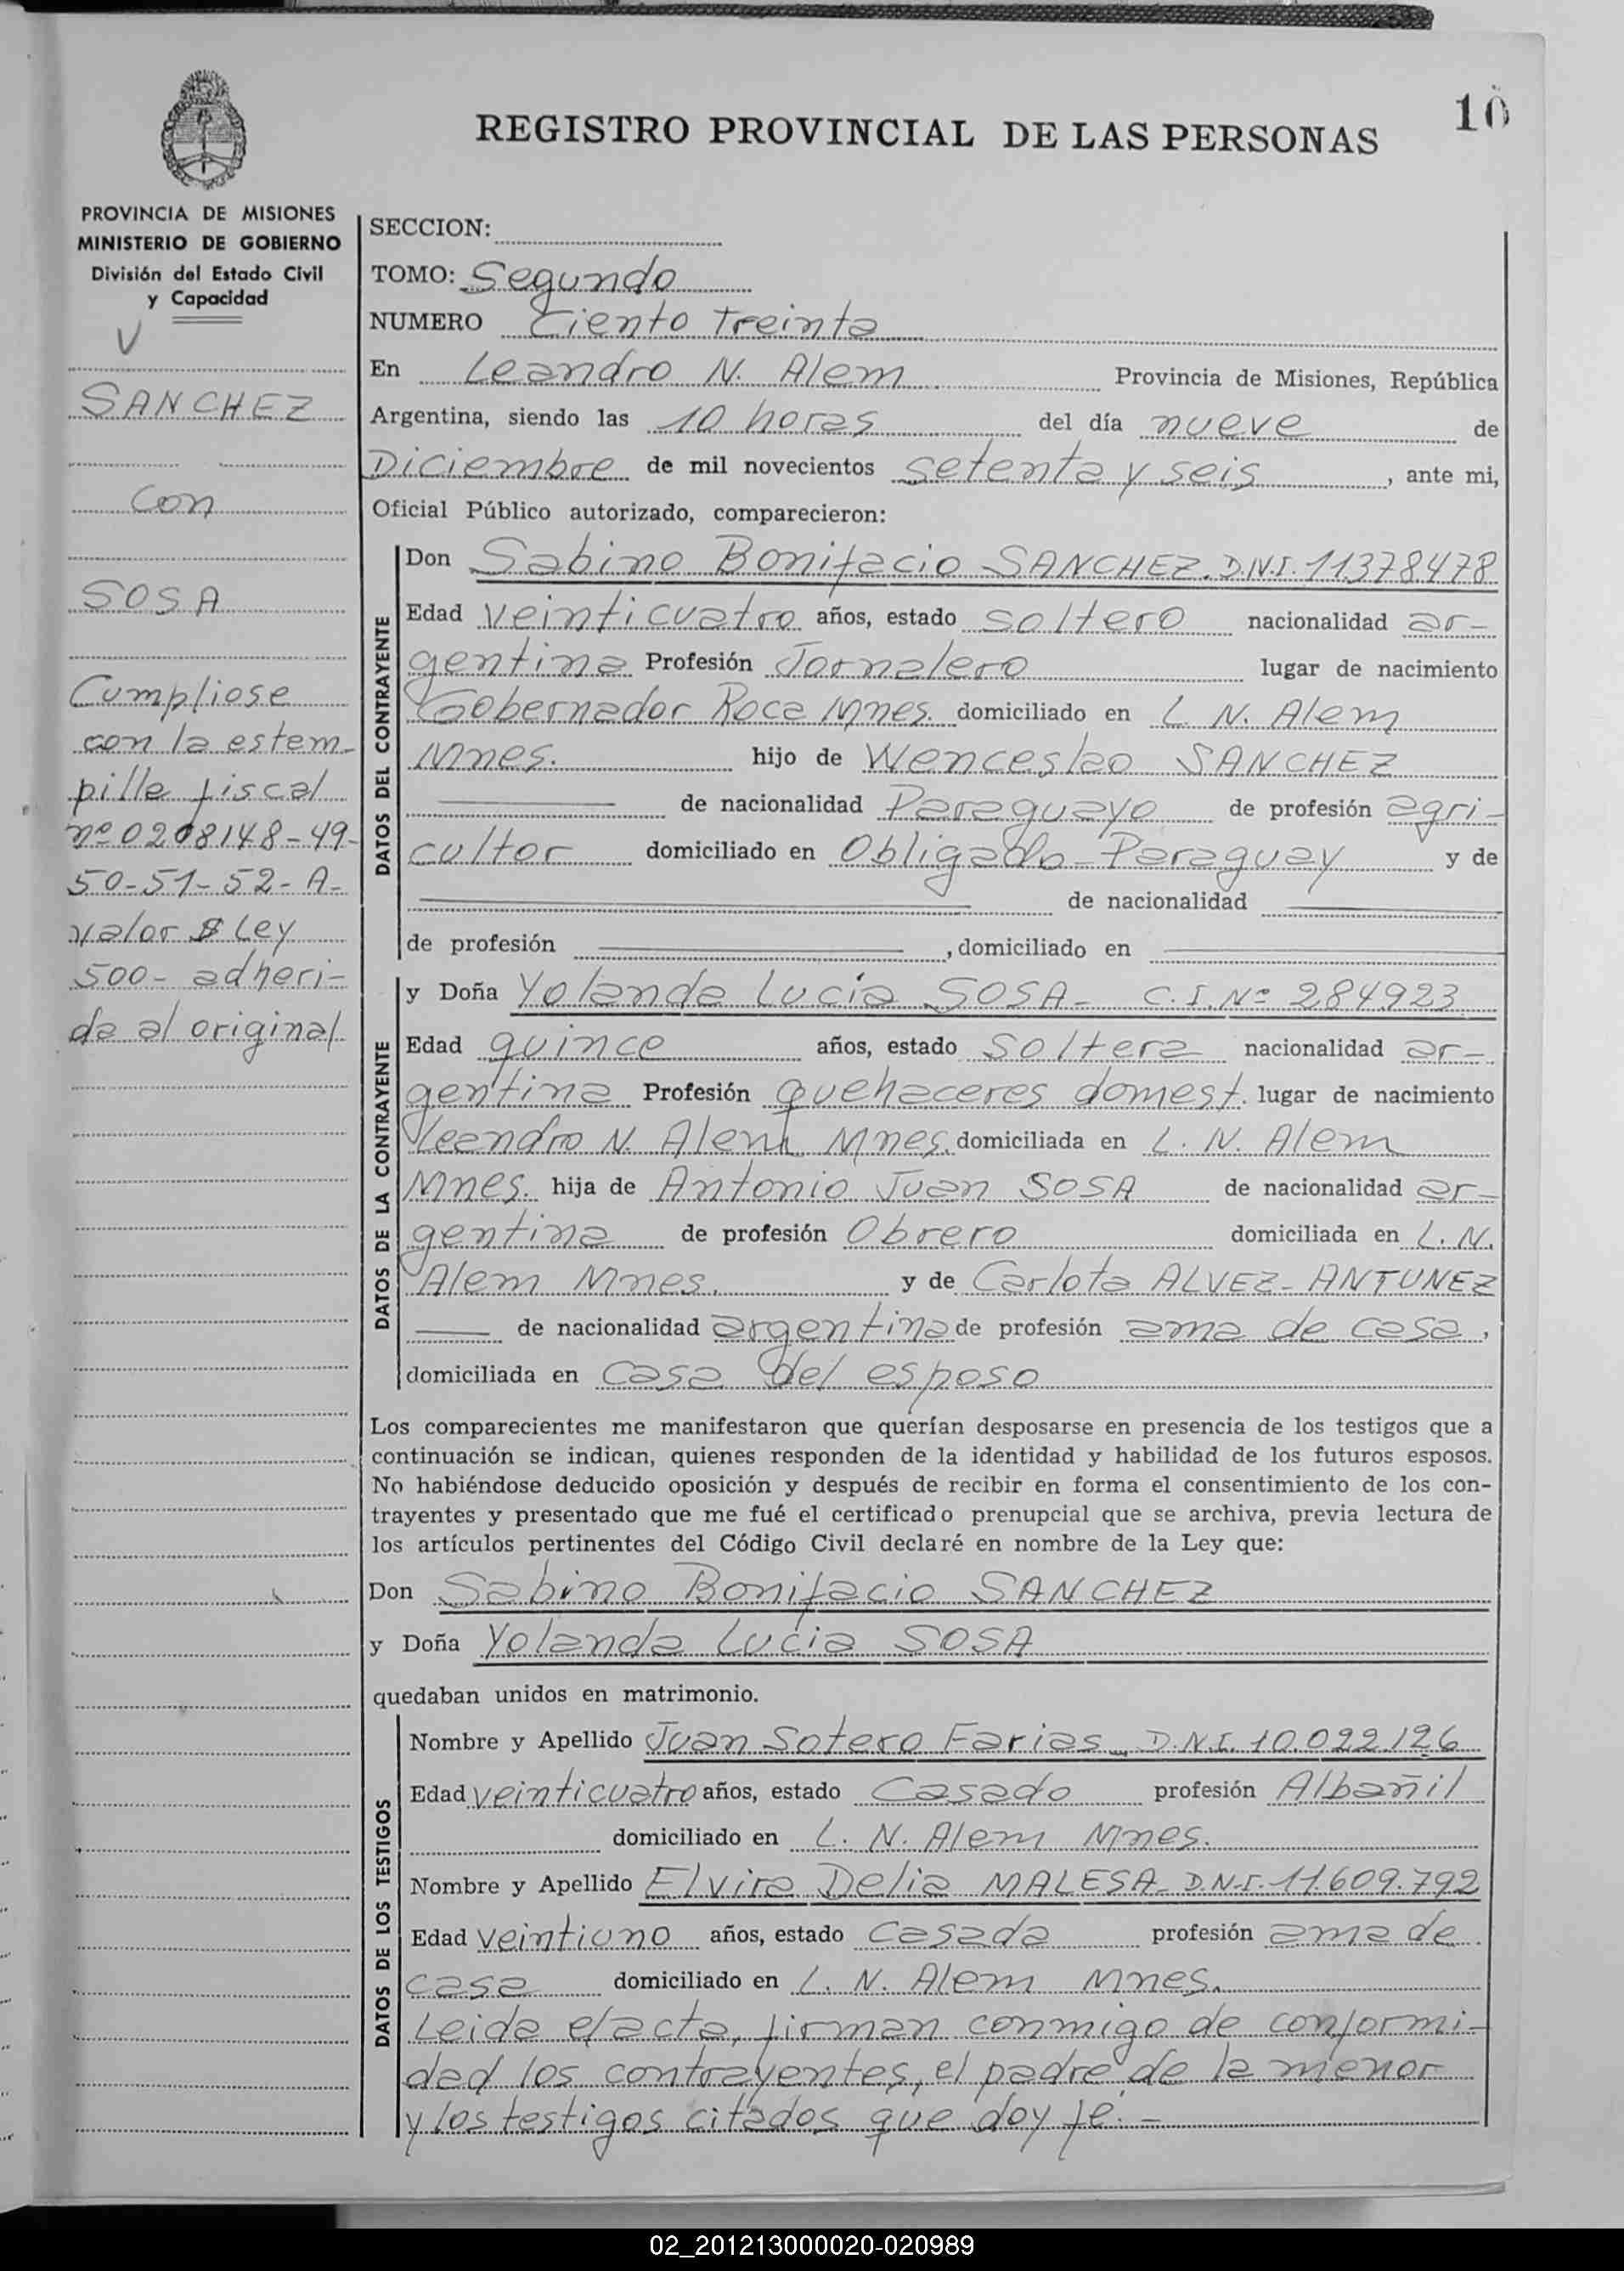 10
REGISTRO PROVINCIAL DE LAS PERSONAS
PROVINCIA DE MISIONES
MINISTERIO DE GOBIERNO
División del Estado Civil
y Capacidad
V
SANCHEZ
con
SOSA
Cumpliose
con la estem-
pilla fiscal
nº 0208148-49-
50-51-52-A-
valor $ Ley
500- adheri-
da al original
SECCION:
TOMO: Segundo
NUMERO Ciento Treinta
En Leandro N. Alem Provincia de Misiones, República
Argentina, siendo las 10 horas del día nueve de
Diciembre de mil novecientos setenta y seis, ante mi,
Oficial Público autorizado, comparecieron:
DATOS DEL CONTRAYENTE
Don Sabino Bonifacio SANCHEZ. D.N.I. 11378478
Edad veinticuatro años, estado soltero nacionalidad ar-
gentina Profesión Jornalero lugar de nacimiento
Gobernador Roca Mnes. domiciliado en L. N. Alem
Mnes. hijo de Wenceslao SANCHEZ
de nacionalidad Paraguayo de profesión agri-
cultor domiciliado en Obligado-Paraguay y de
de nacionalidad
de profesión , domiciliado en
DATOS DE LA CONTRAYENTE
y Doña Yolanda Lucía SOSA- C.I.Nº 284923
Edad quince años, estado soltera nacionalidad ar-
gentina Profesión quehaceres domest. lugar de nacimiento
Leandro N. Alem Mnes. domiciliada en L. N. Alem
Mnes. hija de Antonio Juan SOSA de nacionalidad ar-
gentina de profesión Obrero domiciliada en L. N.
Alem Mnes. y de Carlota ALVEZ-ANTUNEZ
de nacionalidad argentina de profesión ama de casa,
domiciliada en casa del esposo
Los comparecientes me manifestaron que querían desposarse en presencia de los testigos que a
continuación se indican, quienes responden de la identidad y habilidad de los futuros esposos.
No habiéndose deducido oposición y después de recibir en forma el consentimiento de los con-
trayentes y presentado que me fué el certificado prenupcial que se archiva, previa lectura de
los artículos pertinentes del Código Civil declaré en nombre de la Ley que:
Don Sabino Bonifacio SANCHEZ
y Doña Yolanda Lucia SOSA
quedaban unidos en matrimonio.
DATOS DE LOS TESTIGOS
Nombre y Apellido Juan Sotero Farias- D.N.I. 10.022.126
Edad veinticuatro años, estado Casado profesión Albañil
domiciliado en L. N. Alem Mnes.
Nombre y Apellido Elvira Delia MALESA- D.N.I. 11.609.792
Edad veintiuno años, estado Casada profesión ama de
casa domiciliado en L. N. Alem Mnes.
Leida el acta, firman conmigo de conformi-
dad los contrayentes, el padre de la menor
y los testigos citados que doy fe.-
02_201213000020-020989